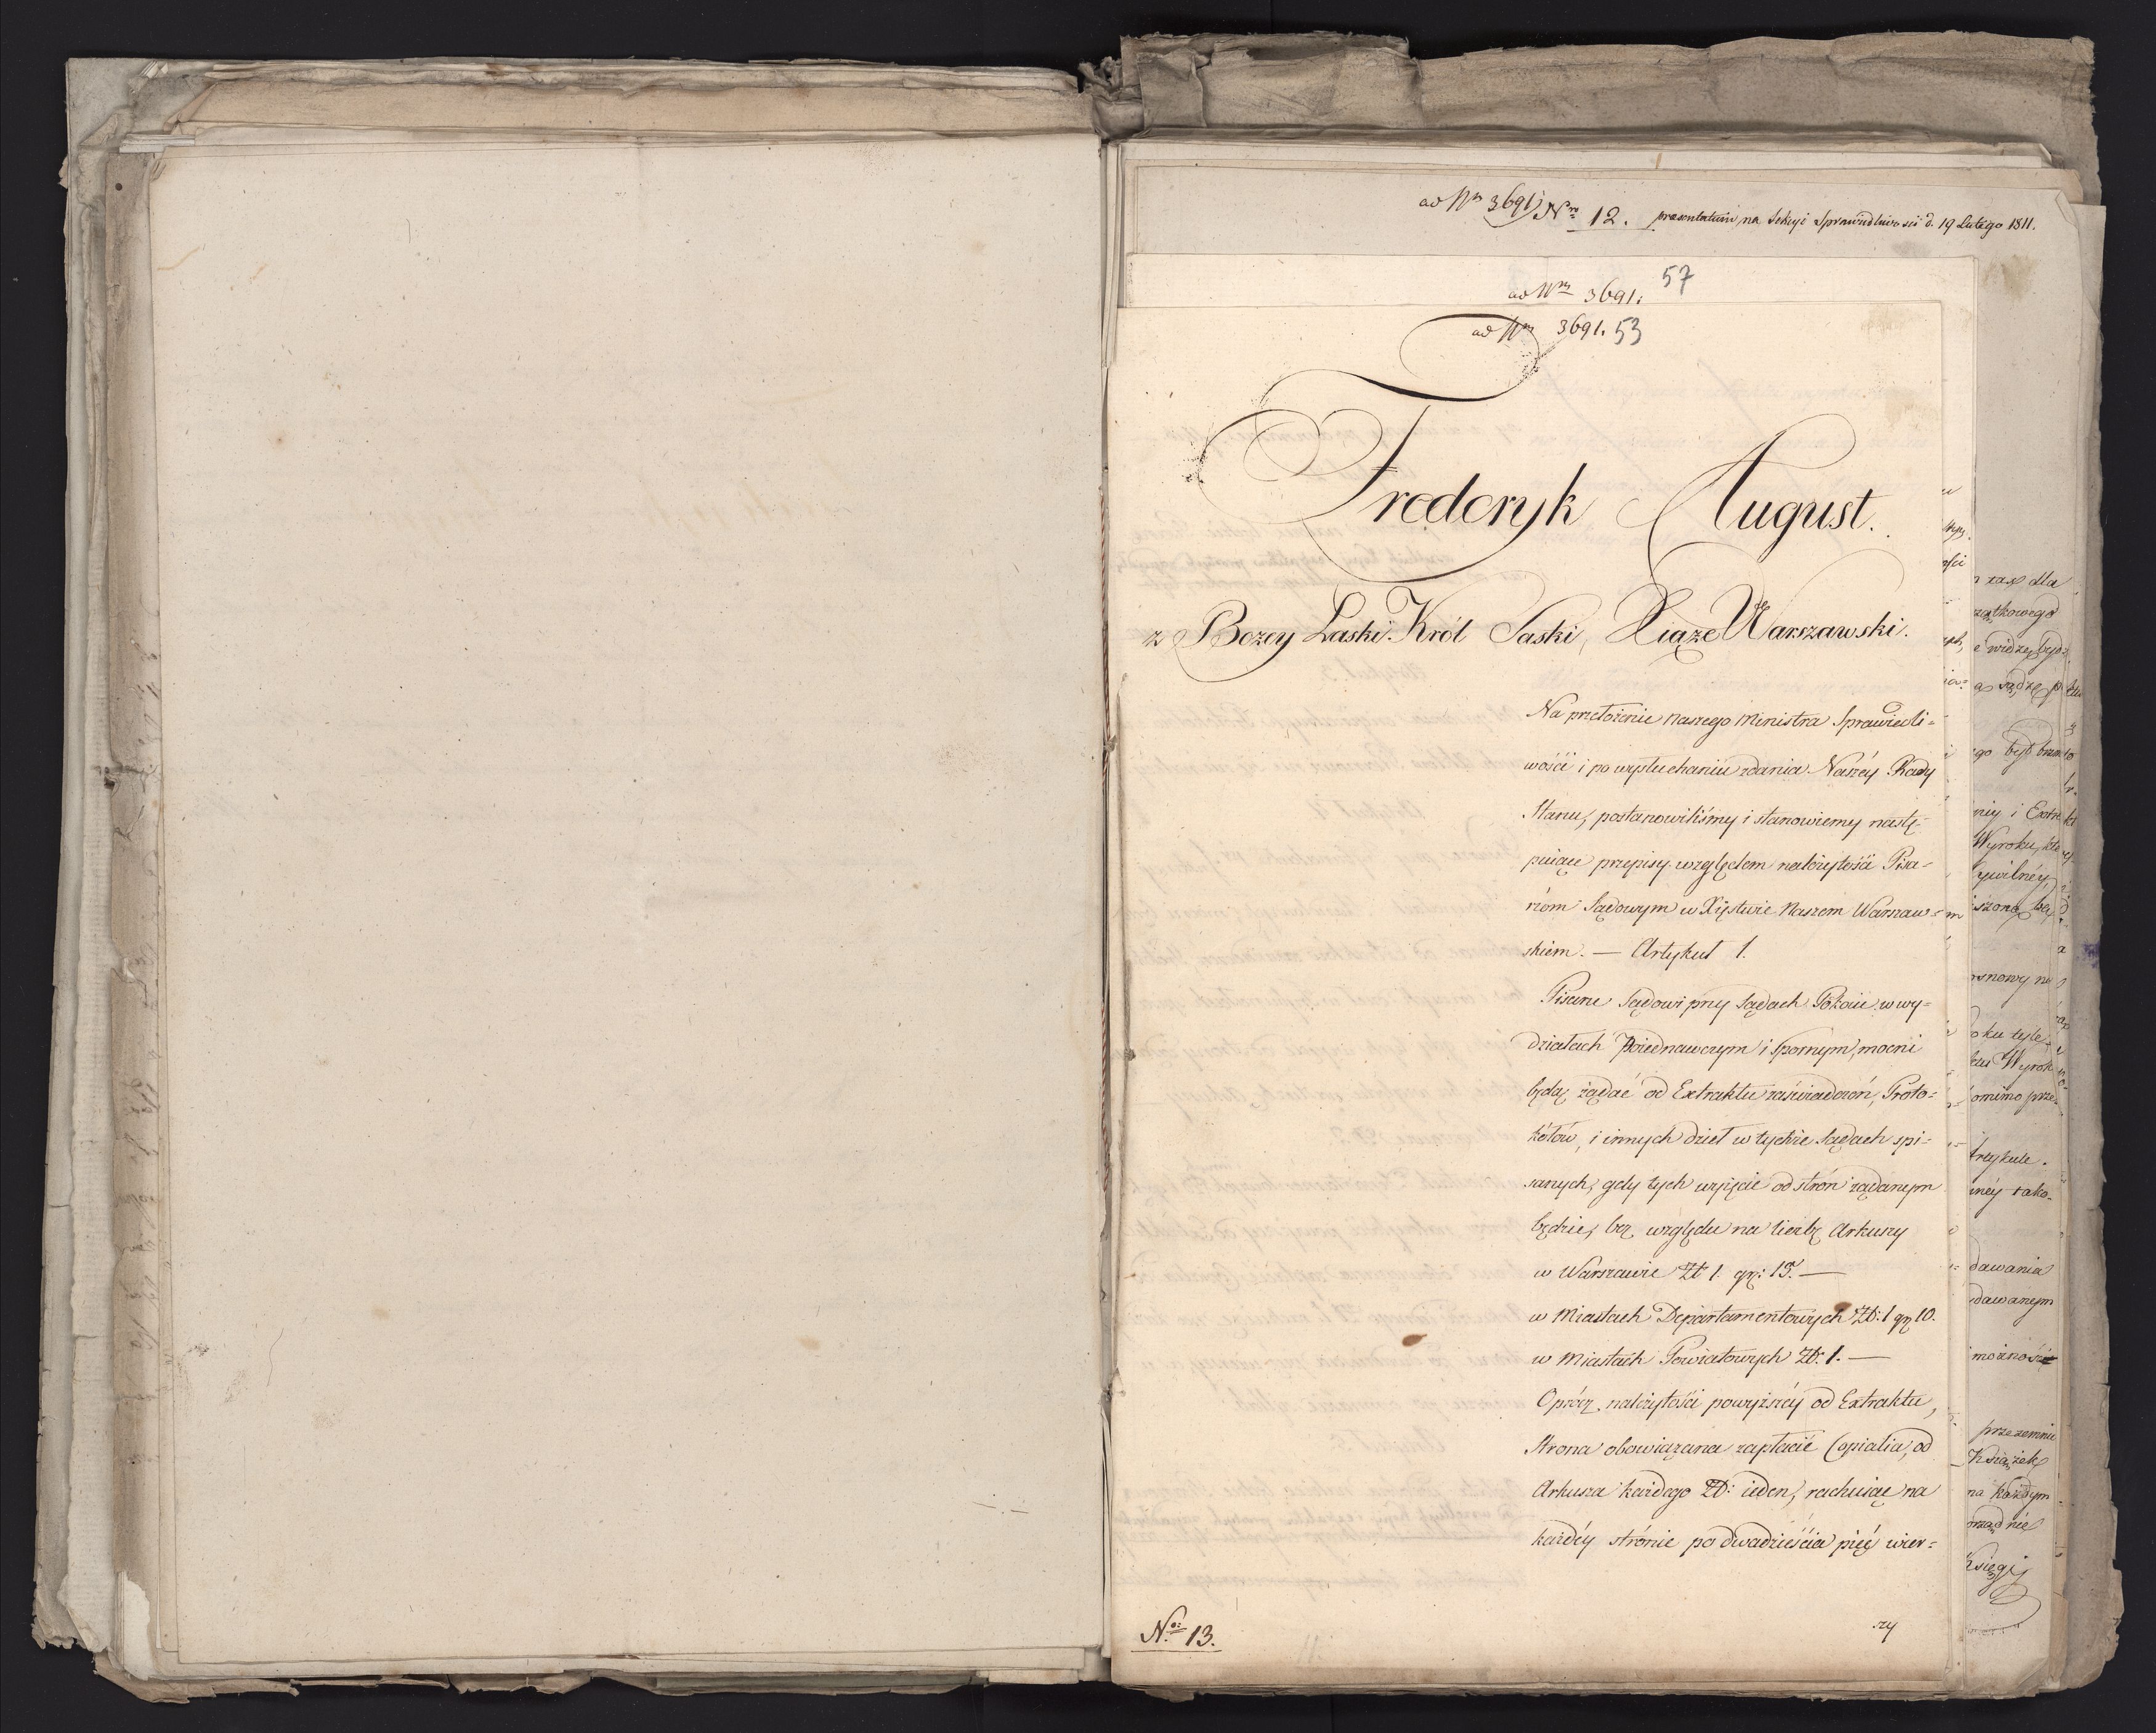 ad Nrm 3691 Nro 12. praesentatum na Sekcyi Sprawiedliwości d. 19 Lutego 1811.
57
ad Nrm 3691.
ad Nrm 3691. 53
Frederyk August.
z Bozey Laski Król Saski, Xiąze Warszawski.
Na przełożenie naszego Ministra Sprawiedli=
wości i po wysłuchaniu zdania Naszéy Rady
Stanu, postanowiliśmy i stanowiemy nastę-
puiące przepisy względem należytości Pisa-
rzom Sądowym w Xięstwie Naszem Warszaw=
skiem. — Artykuł 1.
Pisarze Sądowi przy Sądach Pokoiu w wy=
działach Poiednawczym i Spornym, mocni
będą żądać od Extraktu zaświadczeń, Proto=
kółów, i innych dzieł w tychże Sądach spi=
sanych, gdy tych wyięcie od strón żądanym
będzie, bez względu na liczbę Arkuszy
w Warszawie Zł 1. gr: 15. —
w Miastach Departamentowych Zł: 1 gr 10.
w Miastach Powiatowych Zł: 1. —
Oprócz należytości powyższéy od Extraktu,
Strona obowiązana zapłacić Copialia, od
Arkusza każdego Zł: ieden, rachuiąc na
każdéy strónie po dwadzieścia pięć wier=
szy
No: 13.
zaś dla
widzę być
sądzę
był
i Extra
Wyroku, któ
Cywilnéy
oku tyle
Wyrok
omimo prze
rtykule.
inéy tako-
dawania
dawanym
możność
przezemnie
Książek
na każdym
orządnie
Księgi